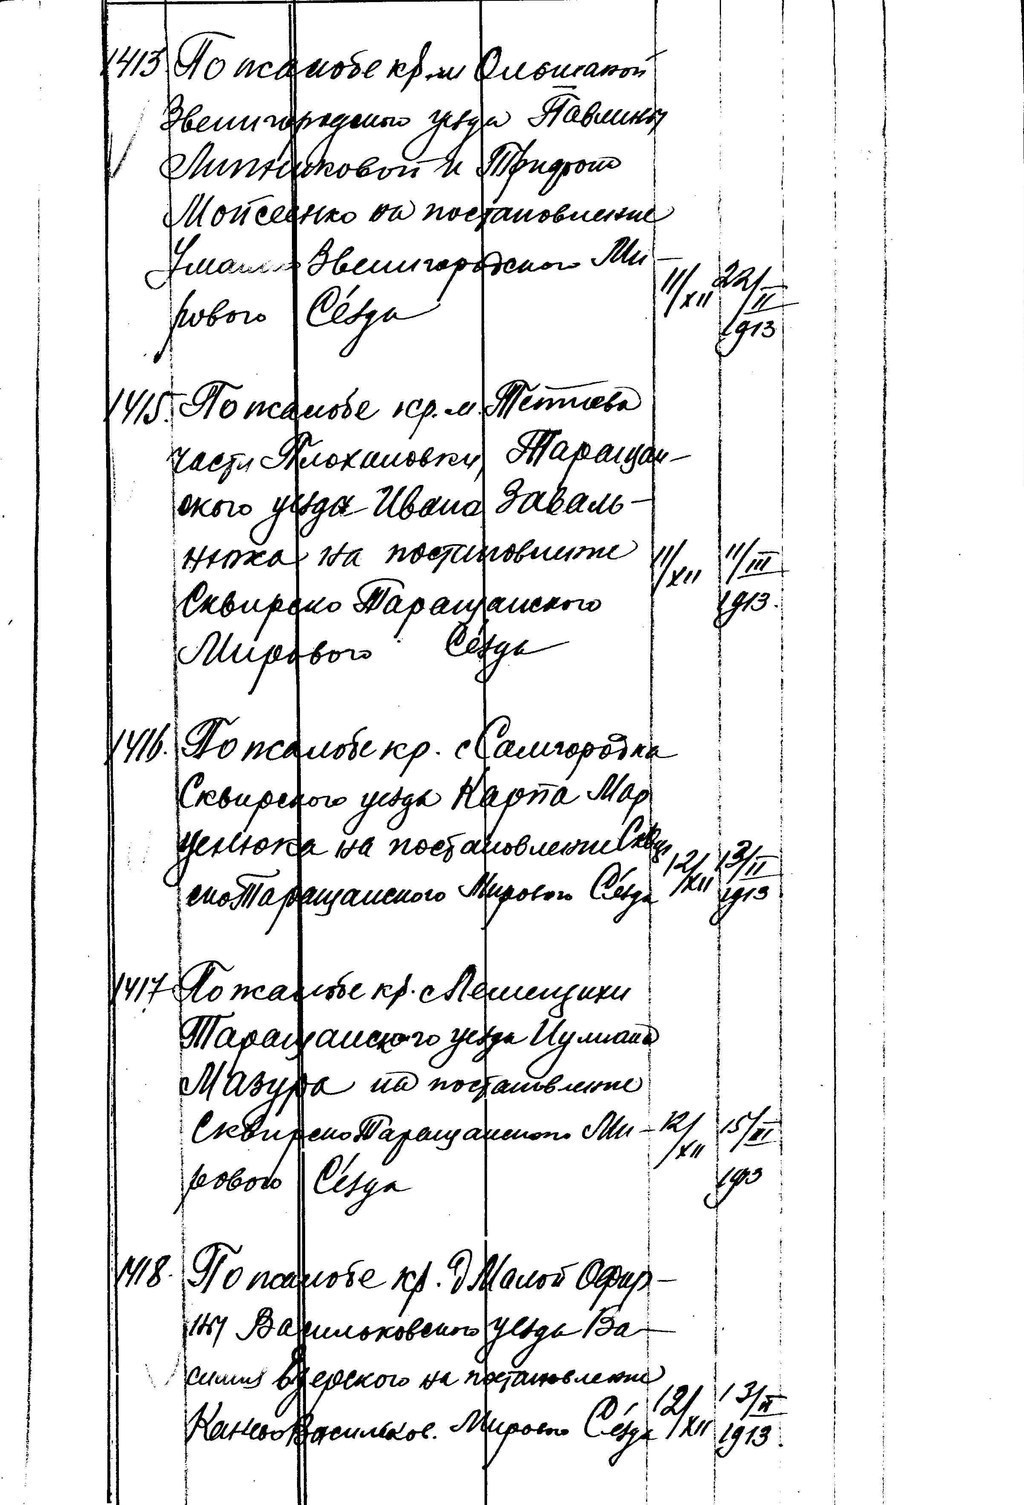 1413 По жалобе кр. м Ольшаной
Звенигородского уезда Павлины
Липниковой и Трифона
Моисеенко на постановление
Уманско Звенигородского Ми-
рового Съезда 11/XII 22/II 1913
1415. По жалобе кр. м. Тетиева
части Плохановки, Таращан-
ского уезда Ивана Заваль-
нюка на постановление 11/XII 11/III
Сквирско Таращанского 1913.
Мирового Съезда
1416. По жалобе кр. с Самгородка
Сквирского уезда Карпа Мар
ценюка на постановление Сквир
ско Таращанского Мирового Съезда 12/XII 13/II 1913
1417 По жалобе кр. с Лещинки
Таращанского уезда Иулиана
Мазура на постановление
Сквирско Таращанского Ми- 12/XII 15/XI
рового Съезда 1913
1418. По жалобе кр. д Малой Офир-
ны Васильковского уезда Ва-
силия на постановление
Васильков. Мирового Съезда 12/XII 13/II 1913.